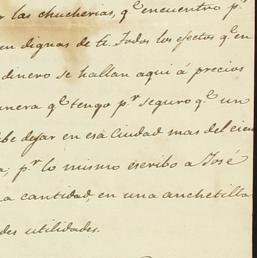 r las chucherias, q.e encuentro p.r
en dignas de ti. Todos los efectos q.e en
dinero se hallan aqui á precios
anera q.e tengo p.r seguro q.e un
be dejar en esa Ciudad mas del cien
a; p.r lo mismo escribo a José
a cantidad, en una anchetilla
des utilidades.